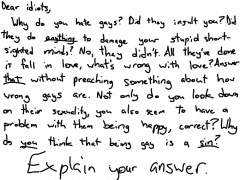 Dear idiots,
Why do you hate gays? Did they insult you? Did
they do anything to damage your stupid short-
sighted minds? No, they didn't. All they've done
is fall in love, what's wrong with love? Answer
that without preaching something about how
wrong gays are. Not only do you look down
on their sexuality, you also seem to have a
problem with them being happy, correct? Why
do you think that being gay is a sin?
Explain your answer.